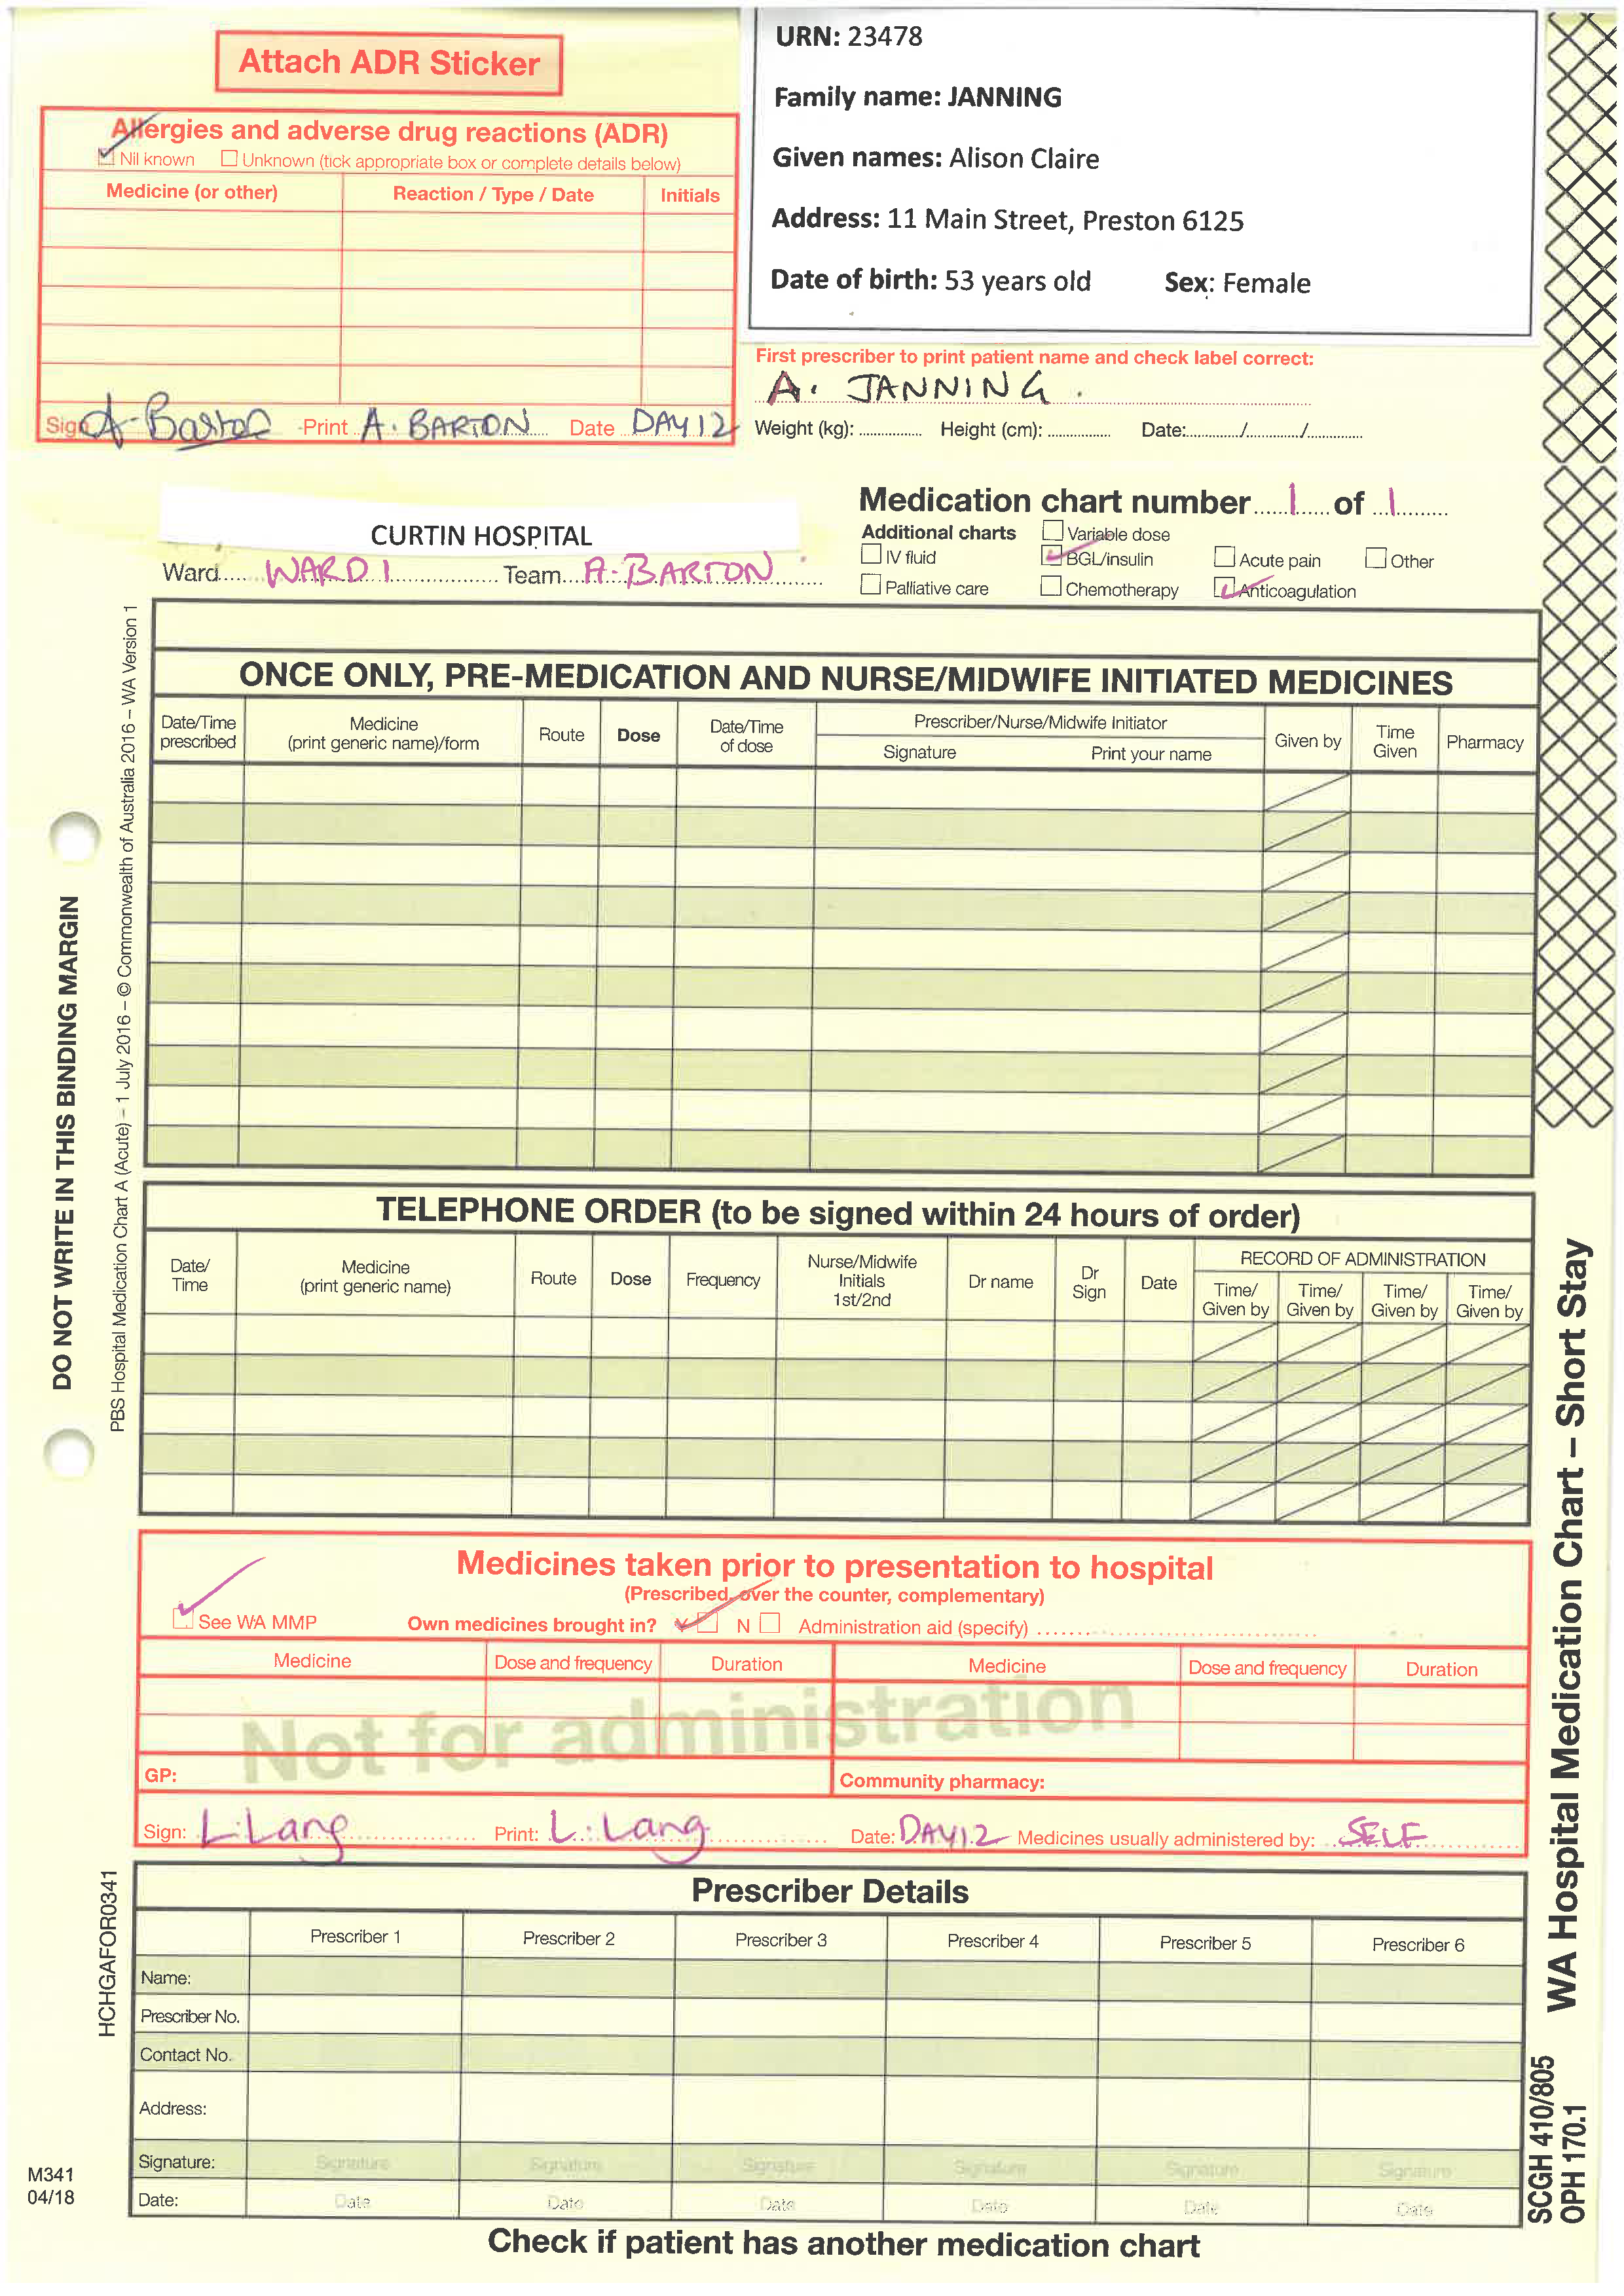 Attach ADR Sticker
Allergies and adverse drug reactions (ADR)
Nil known Unknown (tick appropriate box or complete details below)
Medicine (or other) Reaction / Type / Date Initials
Sign A-Barton Print A. BARTON Date DAY 12
URN: 23478
Family name: JANNING
Given names: Alison Claire
Address: 11 Main Street, Preston 6125
Date of birth: 53 years old Sex: Female
First prescriber to print patient name and check label correct:
A. JANNING.
Weight (kg): Height (cm): Date: / /
CURTIN HOSPITAL
Ward WARD 1 Team A. BARTON
Medication chart number 1 of 1
Additional charts Variable dose
IV fluid BGL/insulin Acute pain Other
Palliative care Chemotherapy Anticoagulation
ONCE ONLY, PRE-MEDICATION AND NURSE/MIDWIFE INITIATED MEDICINES
Date/Time prescribed Medicine (print generic name)/form Route Dose Date/Time of dose Prescriber/Nurse/Midwife Initiator Given by Time Given Pharmacy
Signature Print your name
TELEPHONE ORDER (to be signed within 24 hours of order)
Date/ Time Medicine (print generic name) Route Dose Frequency Nurse/Midwife Initials 1st/2nd Dr name Dr Sign Date RECORD OF ADMINISTRATION
Time/ Given by Time/ Given by Time/ Given by Time/ Given by
Medicines taken prior to presentation to hospital
(Prescribed, over the counter, complementary)
See WA MMP Own medicines brought in? Y N Administration aid (specify)
Medicine Dose and frequency Duration Medicine Dose and frequency Duration
Not for administration
GP: Community pharmacy:
Sign: L. Lang Print: L. Lang Date: DAY 12 Medicines usually administered by: SELF
Prescriber Details
Prescriber 1 Prescriber 2 Prescriber 3 Prescriber 4 Prescriber 5 Prescriber 6
Name:
Prescriber No.
Contact No.
Address:
Signature: Signature Signature Signature Signature Signature Signature
Date: Date Date Date Date Date Date
Check if patient has another medication chart
DO NOT WRITE IN THIS BINDING MARGIN
PBS Hospital Medication Chart A (Acute) – 1 July 2016 – © Commonwealth of Australia 2016 – WA Version 1
HCHGAFOR0341
M341
04/18
WA Hospital Medication Chart – Short Stay
SCGH 410/805
OPH 170.1